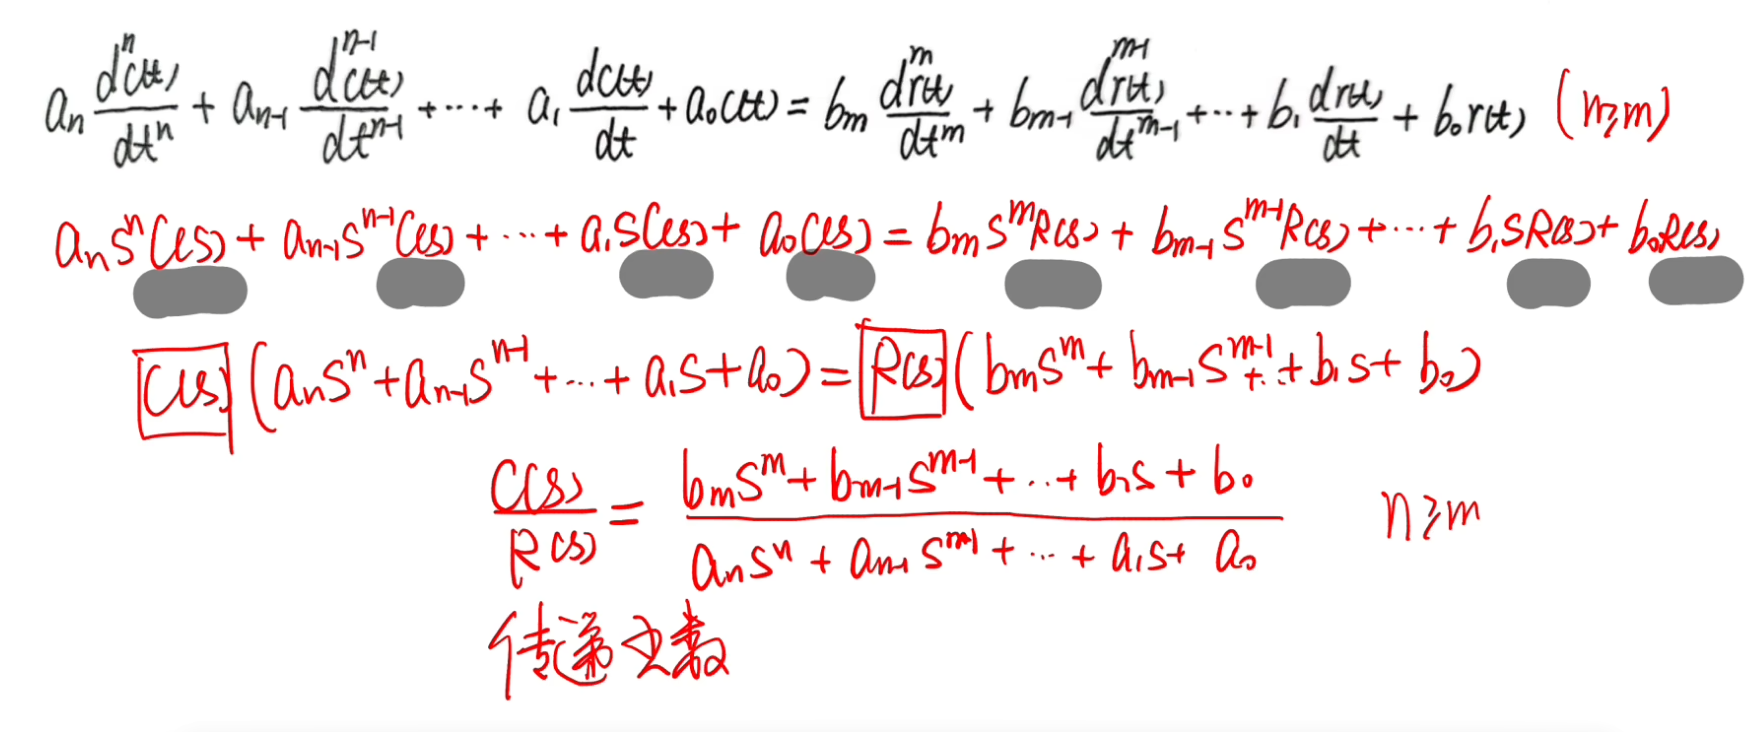 aₙ dⁿc(t)/dtⁿ + aₙ₋₁ dⁿ⁻¹c(t)/dtⁿ⁻¹ + ... + a₁ dc(t)/dt + a₀c(t) = bₘ dᵐr(t)/dtᵐ + bₘ₋₁ dᵐ⁻¹r(t)/dtᵐ⁻¹ + ... + b₁ dr(t)/dt + b₀r(t) (n≥m)
aₙsⁿC(s) + aₙ₋₁sⁿ⁻¹C(s) + ... + a₁sC(s) + a₀C(s) = bₘsᵐR(s) + bₘ₋₁sᵐ⁻¹R(s) + ... + b₁sR(s) + b₀R(s)
C(s) (aₙsⁿ + aₙ₋₁sⁿ⁻¹ + ... + a₁s + a₀) = R(s) (bₘsᵐ + bₘ₋₁sᵐ⁻¹ + ... + b₁s + b₀)
C(s)/R(s) = (bₘsᵐ + bₘ₋₁sᵐ⁻¹ + ... + b₁s + b₀)/(aₙsⁿ + aₙ₋₁sⁿ⁻¹ + ... + a₁s + a₀) n≥m
传递函数